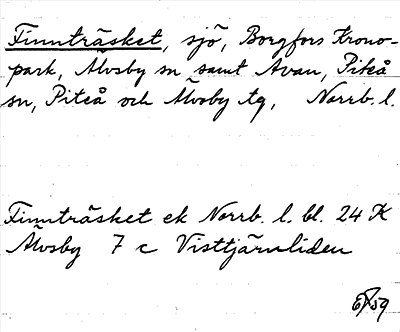 Finnträsket, sjö, Borgfors Krono-
park, Älvsby sn samt Avan, Piteå
sn, Piteå och Älvsby tg, Norrb. l.
Finnträsket ek Norrb. l. bl. 24 K
Älvsby 7 c Visttjärnliden